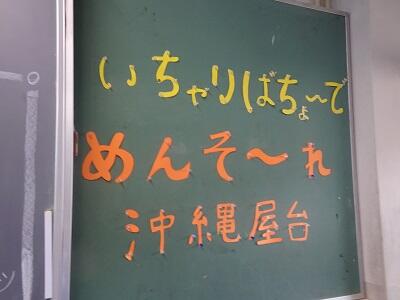 いちゃりばちょ〜で
めんそ〜れ
沖縄屋台